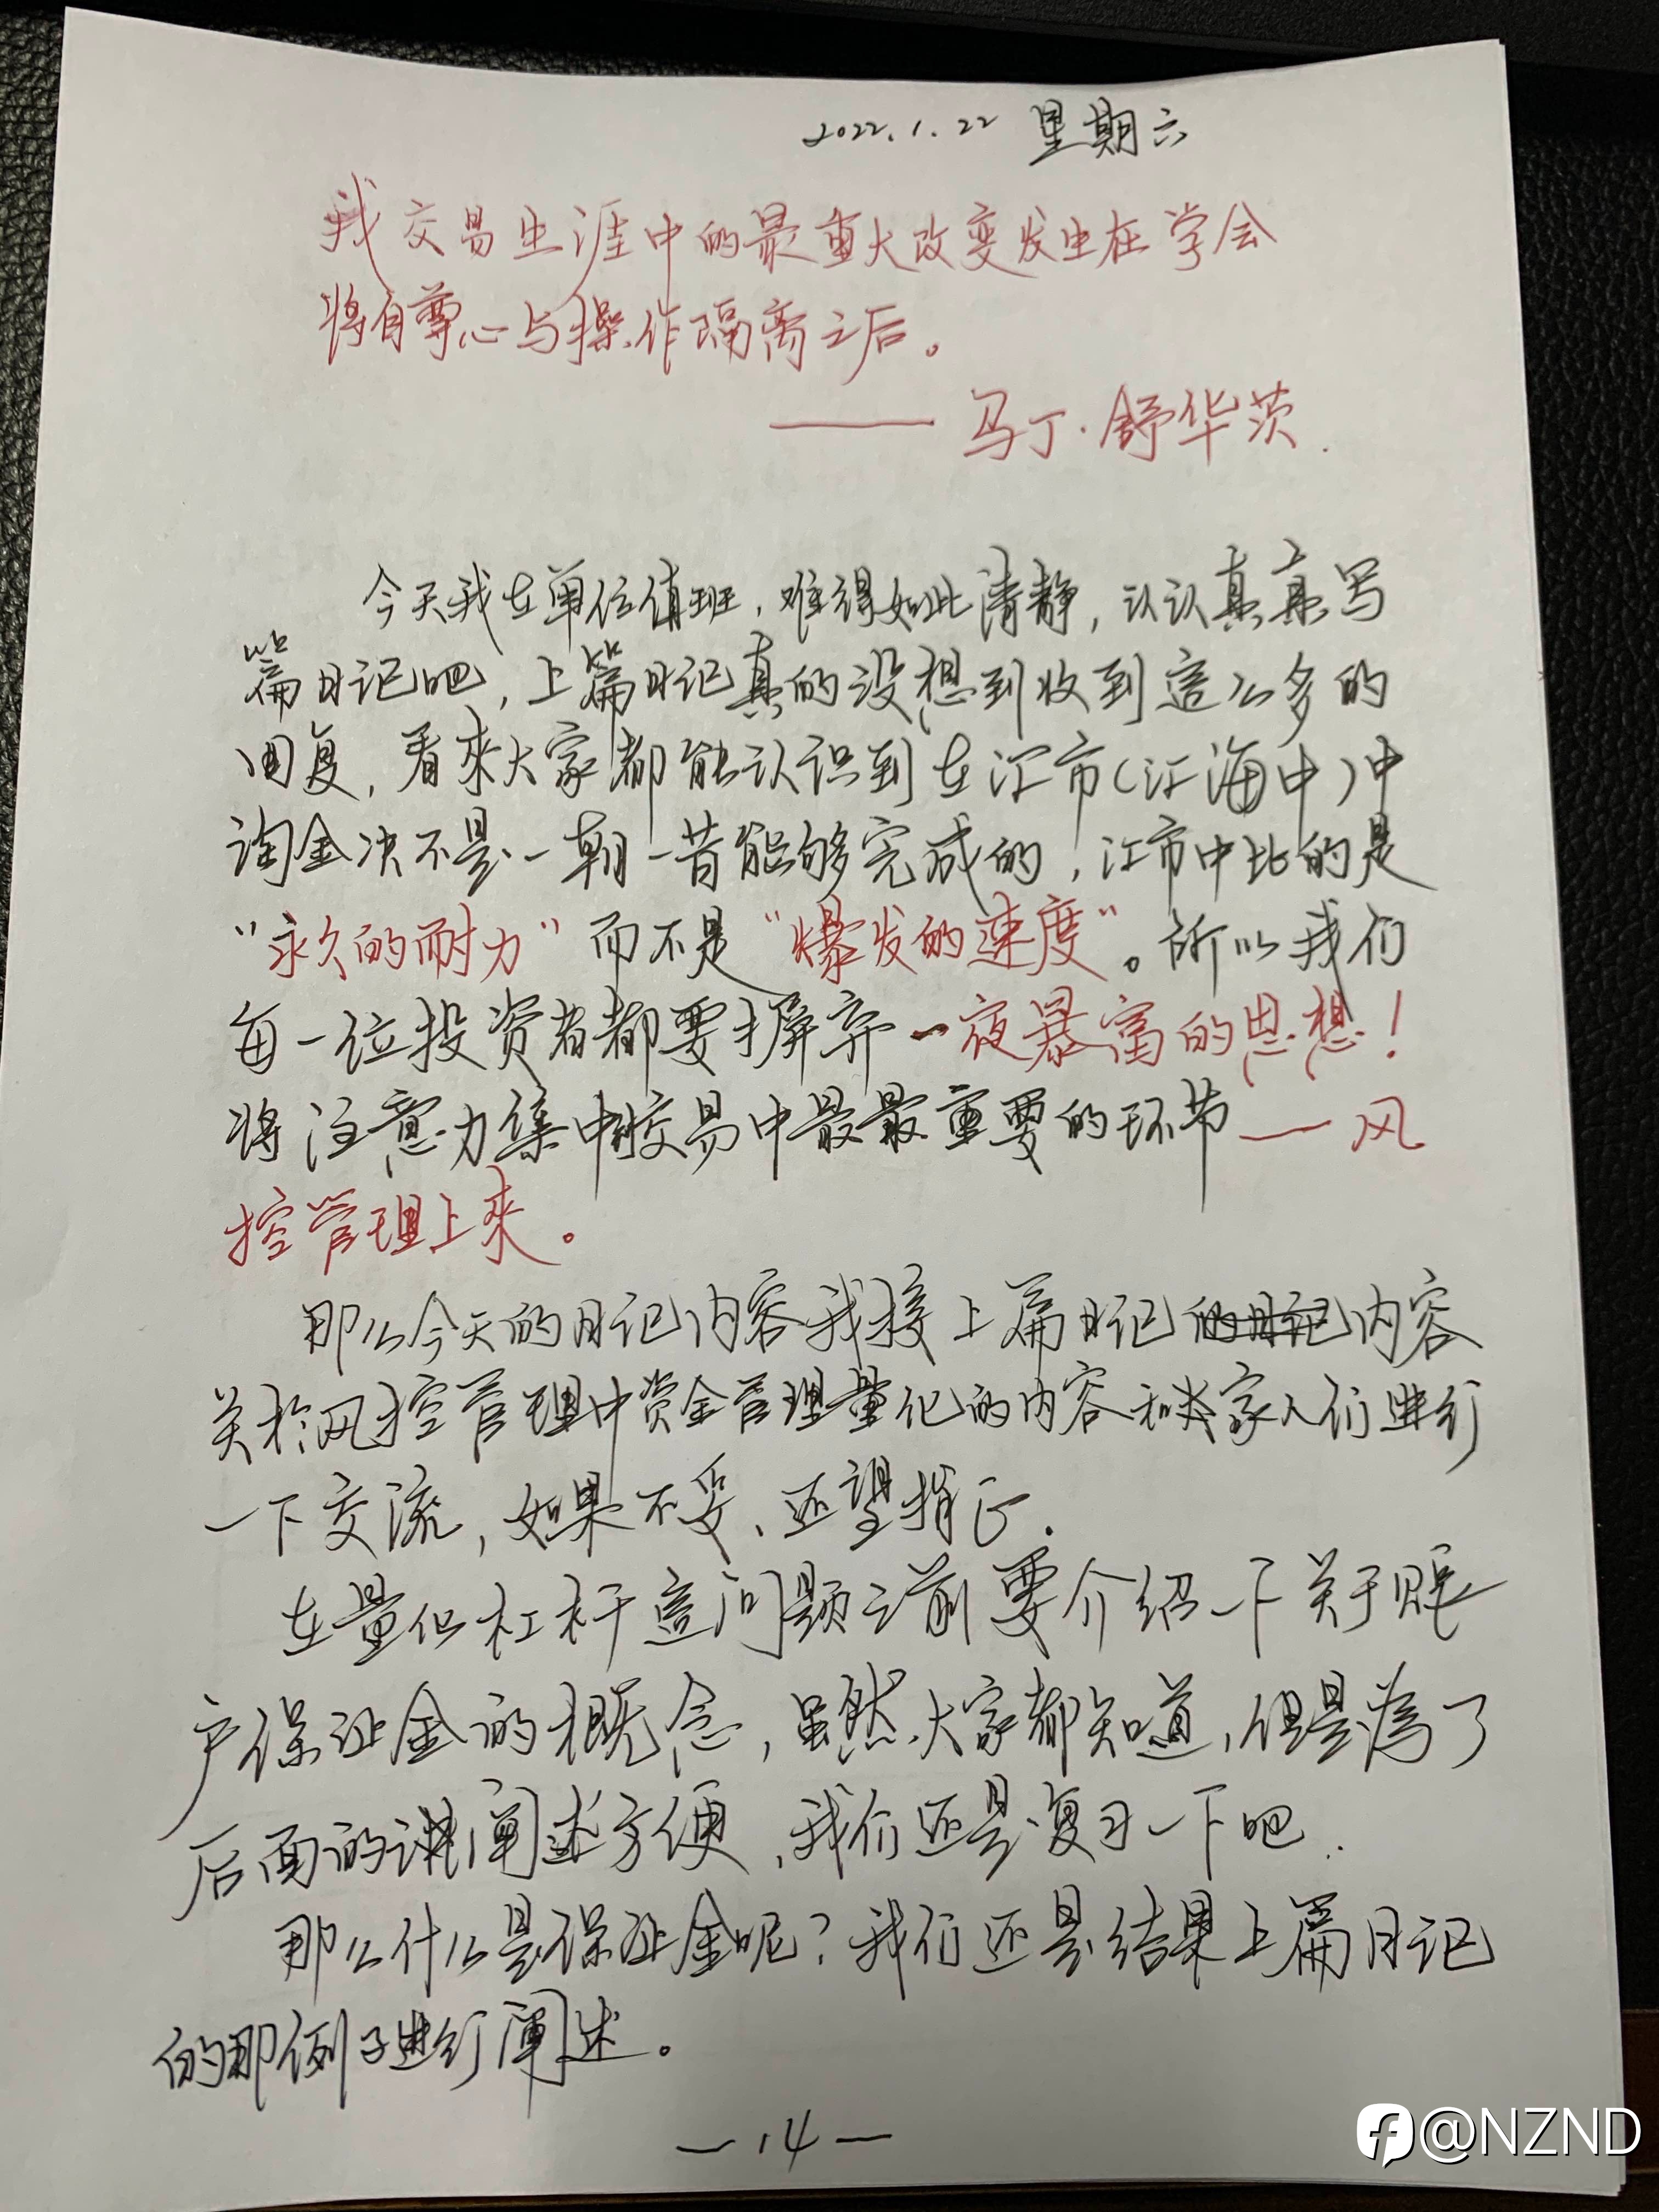 2022.1.22 星期六
我交易生涯中的最重大改变发生在学会
将自尊心与操作隔离之后。
—— 马丁·舒华茨.
今天我在单位值班，难得如此清静，认认真真写
篇日记吧，上篇日记真的没想到收到这么多的
回复，看来大家都能认识到在汇市(汇海中)中
淘金决不是一朝一昔能够完成的，汇市中比的是
“永久的耐力”而不是“爆发的速度”。所以我们
每一位投资者都要摒弃一夜暴富的思想！
将注意力集中交易中最最重要的环节—风
控管理上来。
那么今天的日记内容我接上篇日记的日记内容
关于风控管理中资金管理量化的内容和大家人们进行
一下交流，如果不妥、还望指正.
在量化杠杆这问题之前要介绍一下关于账
户保证金的概念，虽然大家都知道，但是为了
后面的讲阐述方便，我们还是复习一下吧.
那么什么是保证金呢？我们还是结果上篇日记
的那例子进行阐述。
—14—
@NZND